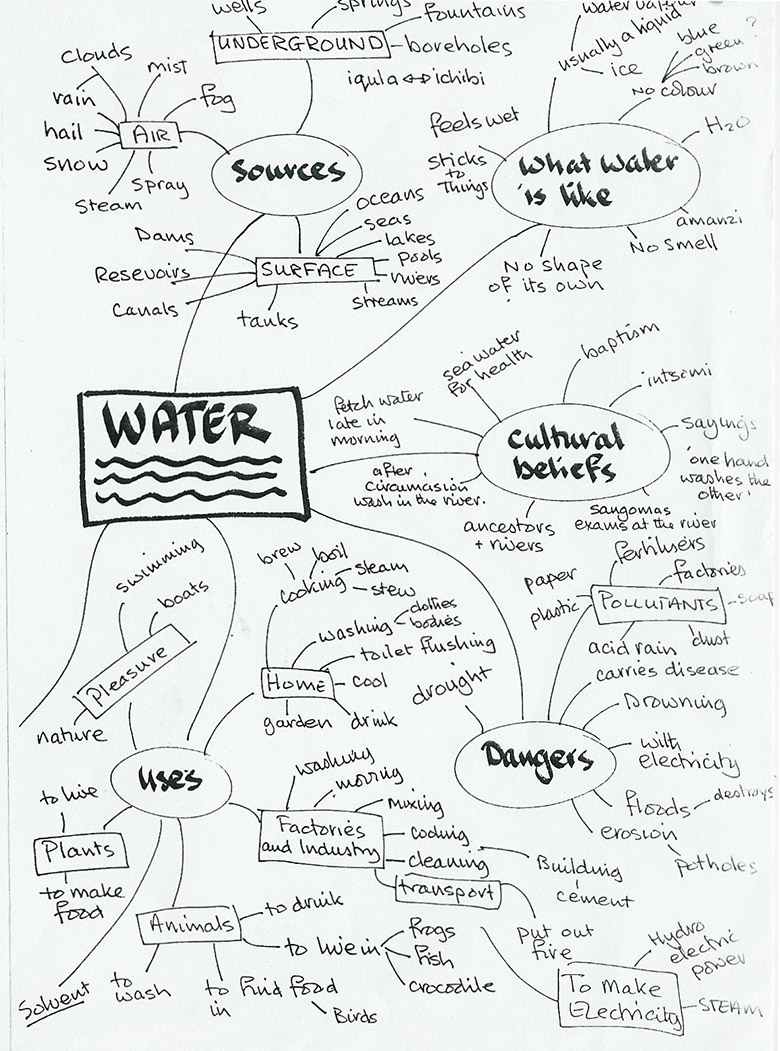 wells
springs
fountains
UNDERGROUND
boreholes
iqula ↔ ichibi
clouds
mist
rain
fog
hail
AIR
snow
Spray
Steam
Sources
oceans
seas
lakes
pools
rivers
streams
SURFACE
Dams
Resevoirs
Canals
tanks
water vapour
usually a liquid
ice
blue
green ?
brown
No colour
H2O
feels wet
sticks
to
Things
What water
is like
amanzi
No smell
No shape
of its own
WATER
sea water
for health
baptism
intsomi
fetch water
late in
morning
sayings
'one hand
washes the
other'
Cultural
beliefs
after
circumcision
wash in the river.
ancestors
+ rivers
sangomas
exams at the river
swimming
boats
Pleasure
nature
brew
boil
steam
cooking
stew
washing
clothes
bodies
toilet flushing
HOME
cool
garden
drink
fertilisers
factories
paper
plastic
POLLUTANTS
soap
acid rain
dust
carries disease
drought
Drowning
Dangers
with
electricity
floods
destroys
erosion
potholes
uses
to live
Plants
to make
food
washing
moving
mixing
Factories
and Industry
cooling
cleaning
transport
Building
cement
put out
fire
Animals
to drink
to live in
frogs
fish
crocodile
to
wash
to find food
in
Birds
Solvent
Hydro
electric
power
To Make
Electricity
STEAM